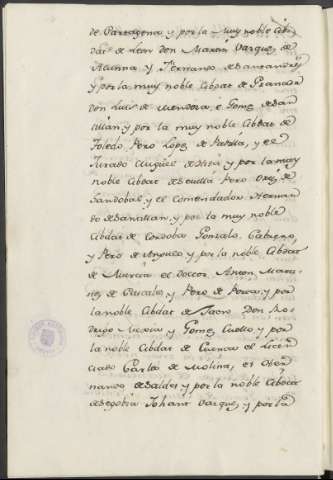 de Cartagena y por la Muy noble Cib
dat de Leon Don Martin Vazquez de
Acuña y Fernando de Santander
y por la muy noble Cibdat de Granada
Don Luis de Mendoza, e Gomez de San
tillan y por la muy noble Cibdat de
Toledo, Pero Lopez de Padilla, y el
Jurado Miguel de Hita y por la muy
noble Cibdat de Sevilla Pero Ortiz de
Sandobal y el Comendador Hernan
do de Santillan, y por la muy noble
Cibdat de Cordoba Gonzalo Cabrero,
y Pero de Angulo y por la noble Cibdat
de Murcia el Doctor Anton Marti
nez de Cascales y Pero de y por
la noble Cibdat de Jaen Don Ro
drigo Mexia y Gomez Cuello y por
la noble Cibdat de Cuenca el Licen
ciado Carlos de Molina, e Her
nando de Valdes y por la noble Cibdat
de Segobia Johant Vazquez y por la